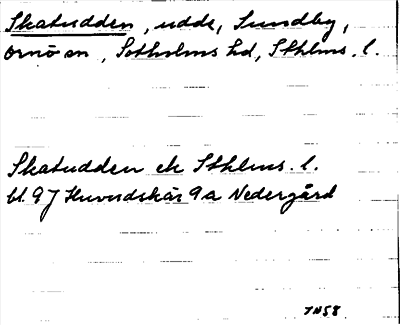 Skatudden, udde, Sundby,
Ornö sn, Sotholms hd, Sthlms. l.
Skatudden ek Sthlms. l.
bl. 9J Huvudskär 9a Nedergård
TN58